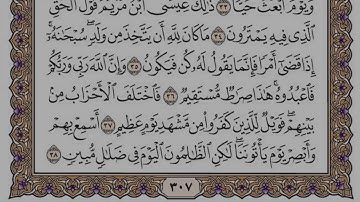 وَيَوْمَ أُبْعَثُ حَيًّا ٣٣ ذَٰلِكَ عِيسَى ٱبْنُ مَرْيَمَ قَوْلَ ٱلْحَقِّ
ٱلَّذِى فِيهِ يَمْتَرُونَ ٣٤ مَا كَانَ لِلَّهِ أَن يَتَّخِذَ مِن وَلَدٍ سُبْحَٰنَهُۥٓ
إِذَا قَضَىٰٓ أَمْرًا فَإِنَّمَا يَقُولُ لَهُۥ كُن فَيَكُونُ ٣٥ وَإِنَّ ٱللَّهَ رَبِّى وَرَبُّكُمْ
فَٱعْبُدُوهُ هَٰذَا صِرَٰطٌ مُّسْتَقِيمٌ ٣٦ فَٱخْتَلَفَ ٱلْأَحْزَابُ مِنۢ
بَيْنِهِمْ فَوَيْلٌ لِّلَّذِينَ كَفَرُوا۟ مِن مَّشْهَدِ يَوْمٍ عَظِيمٍ ٣٧ أَسْمِعْ بِهِمْ
وَأَبْصِرْ يَوْمَ يَأْتُونَنَا لَٰكِنِ ٱلظَّٰلِمُونَ ٱلْيَوْمَ فِى ضَلَٰلٍ مُّبِينٍ ٣٨
٣٠٧